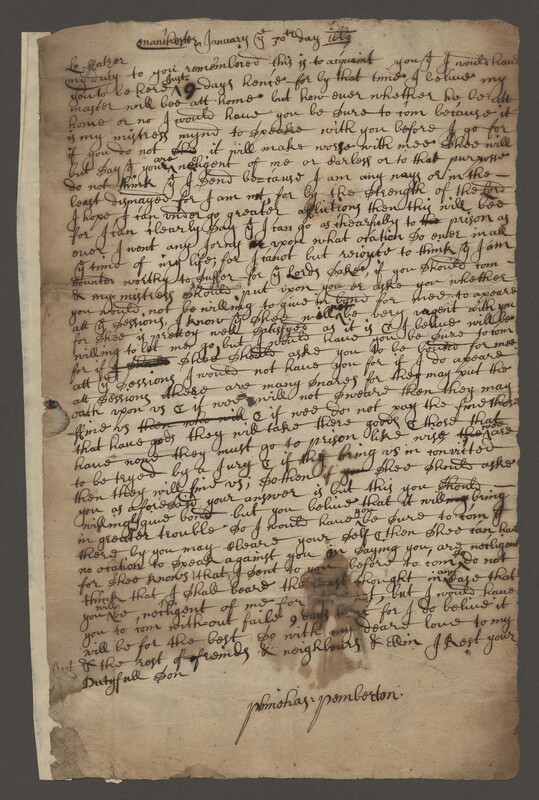 manchester January ye 30th day
Lo. ffather
my duty to you remembred this is to acquaint you yt I would have
you to be here Just 9 days hence for by that time I belive my
master will bee att home but how ever whether he be att
home or no I would have you be sure to com because it
is my mistress mynd to speake with you before I go for
if you do not it will make worse with mee shee will
but say yt your are neligent of me or carless or to that purpose
do not think yt I send because I am any ways or in the
least dismayed for I am not for by the strength of the lord
I hope I can under go greater afflictions then this will bee
for I can clearly say yt I can go as chearfully to prison as
ever I went any Jorny or upon what ocation so ever in all
ye time of my life, for I canot but rejoyce to think yt I am
counted worthy to suffer for ye Lords sake, if you should com
& my mistress should put upon you or aske you whether
you would not be willing to give in bond for mee to apeare
att ye sessions, I know shee will be very urgent with you
for shee is pretty well satisfyed as it is & I belive will be
willing to let me go, but I would have you be sure to com
for if shee should aske you to be bound for mee
att ye sessions I would not have you for if I do apeare
att sessions there are many snares for they may put the
oath upon us & if wee will not sweare then they may
ffine us & if wee do not pay the fine those
that have gods they will take there goods & those that
have none they must go to prison like wise wee are
to be tryed by a Jury & if they bring us in convited
then they will fine us, so then if shee should aske
you as aforesaid your answer is but this you should
willingly give bond but you belive that it will bring
in greater trouble so I would have you be sure to com yt
there by you may cleare your self & then shee can have
no ocation to speak against you in saying you are negligent
for shee knows that I sent to you before to com do not
think that I shall beare the least thought in case that
you will be neligent of me for but I would have
you to com without faile 9 days hence for I do belive it
will be for the best so with my deare love to my
& the rest of freinds & neighbours & Ellin I Rest your
Dutyfull son
phinehas pemberton